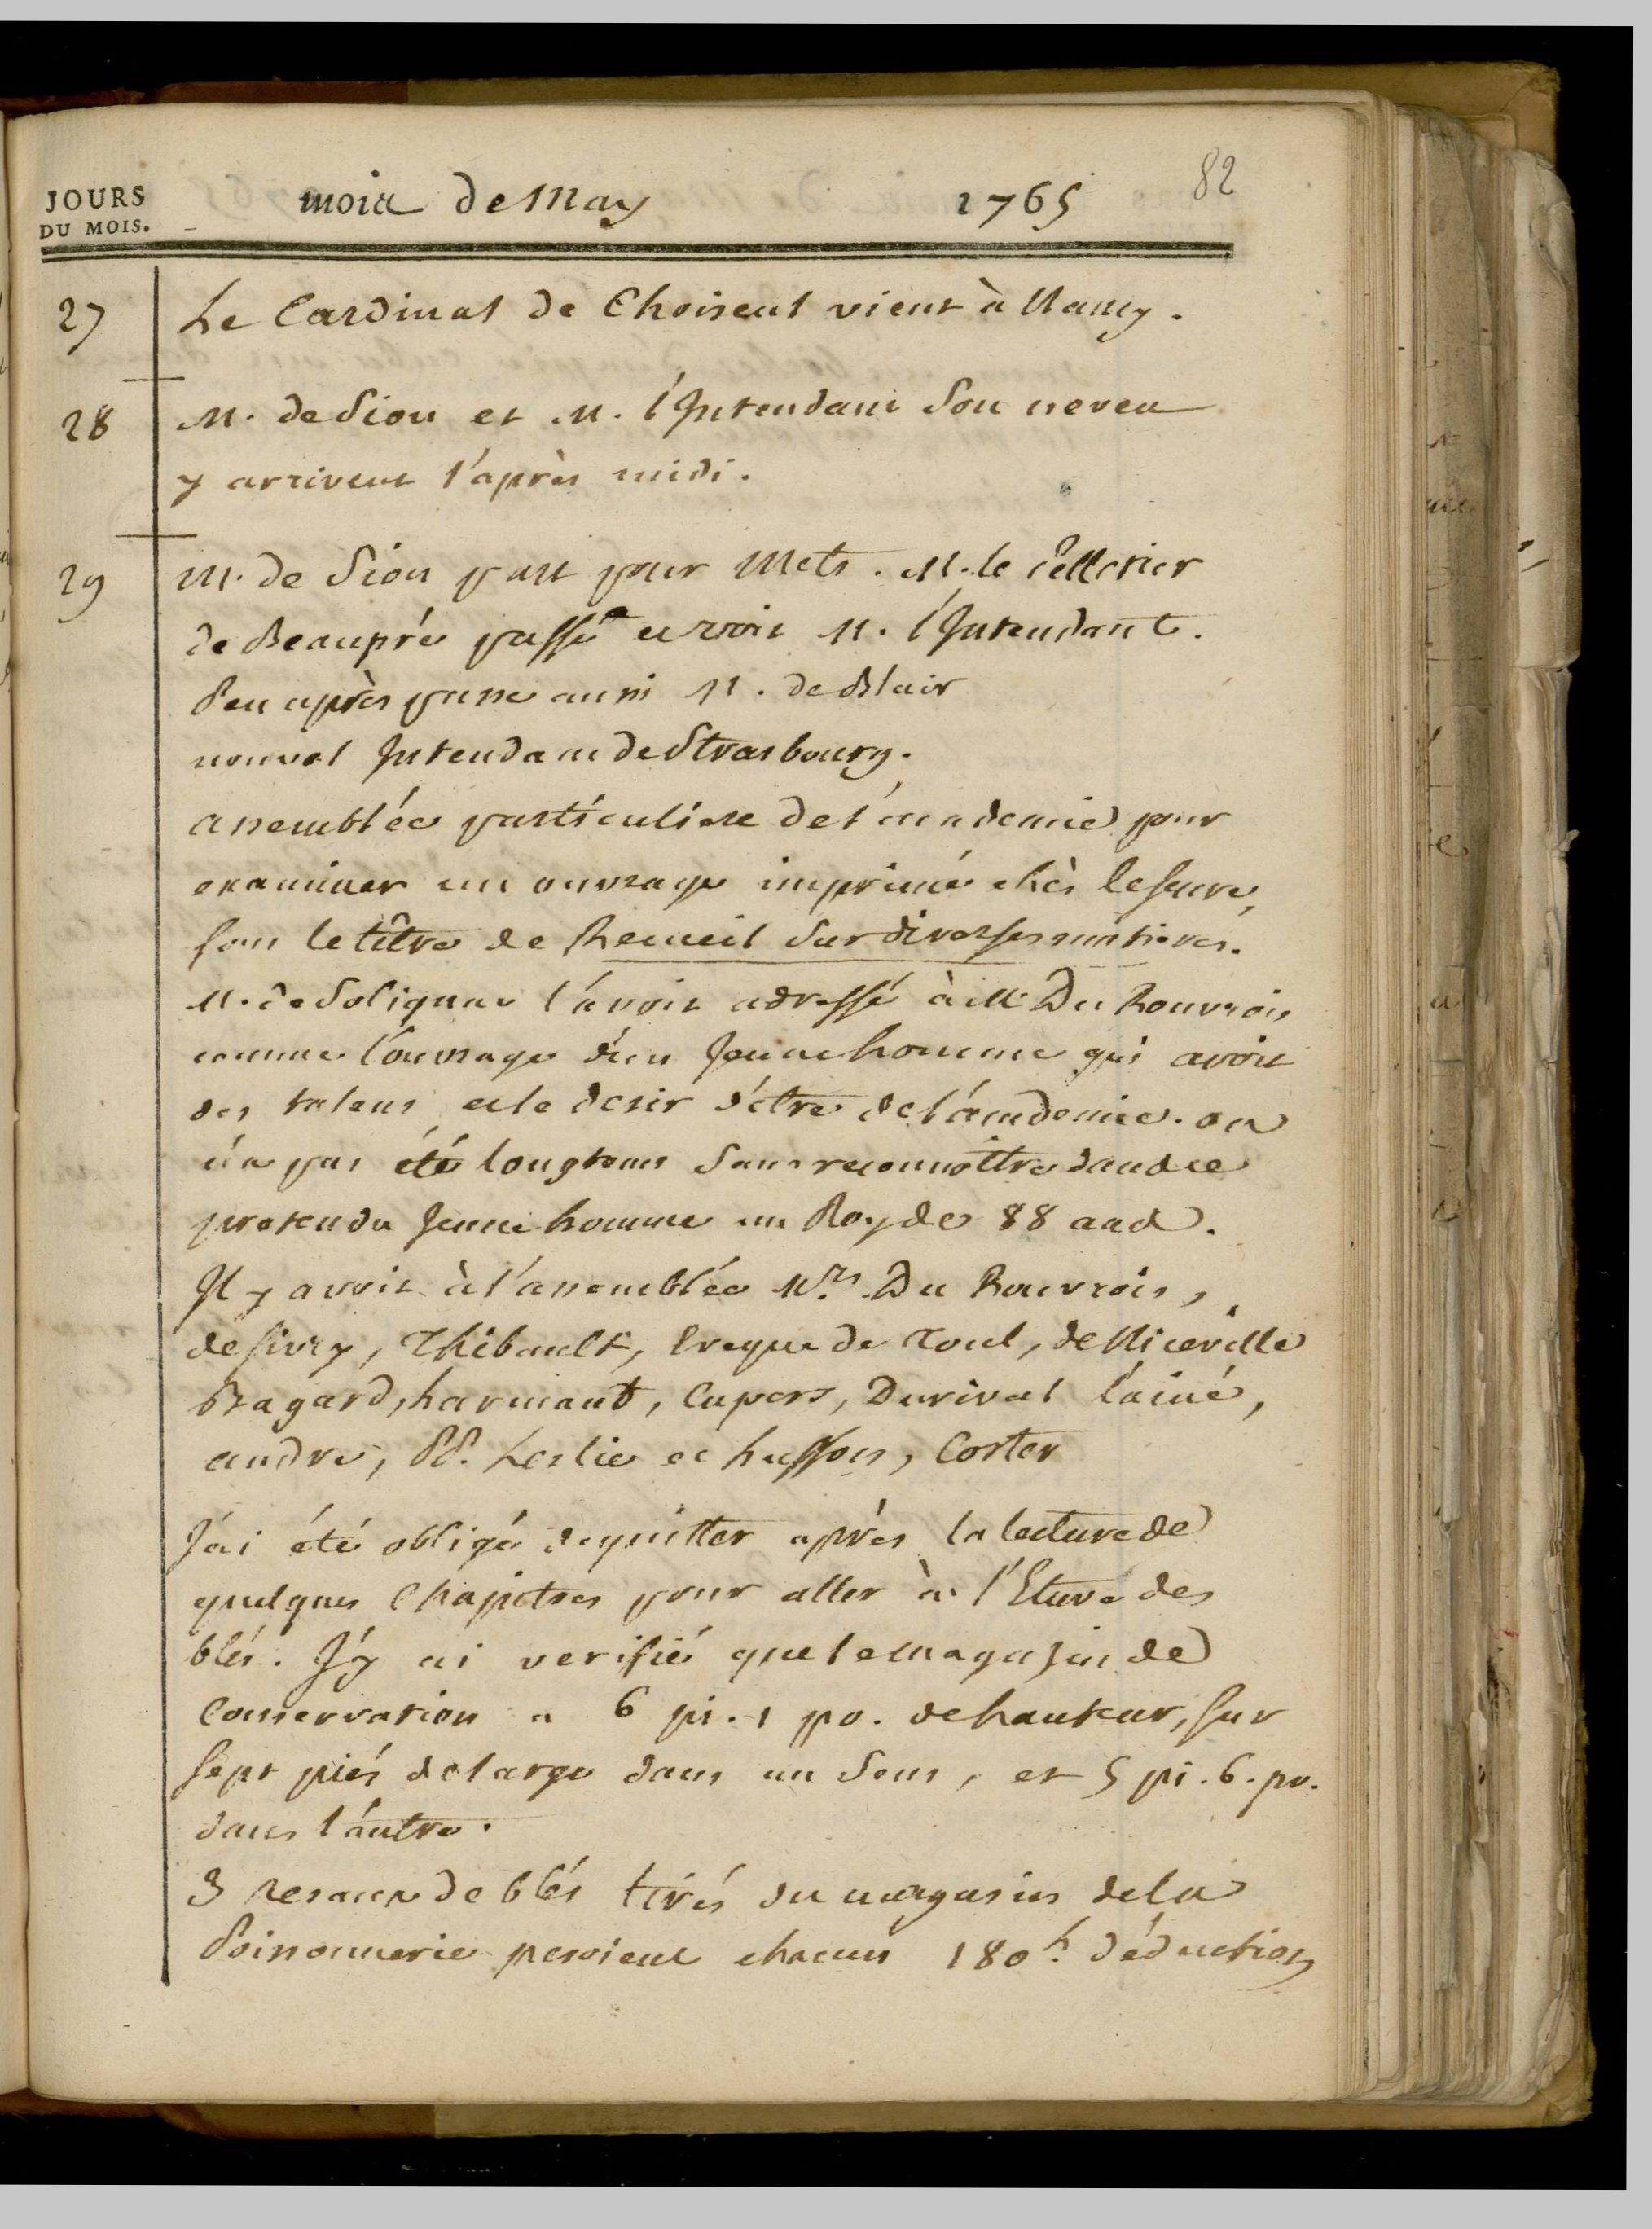 82
JOURS DU MOIS.
mois de May 1765
27 Le Cardinal de Choiseul vient à Nancy.
28 M. de Sion et M. l'Intendant Son neveu
y arrivent l'après midi.
29 M. de Sion part pour Mets. M. le Pelletier
de Beaupré passe et voit M. l'Intendant.
Peu après passe aussi M. de Blair
nouvel Intendant de Strasbourg.
assemblée particuliere de l'academie pour
examiner un ouvrage imprimé chès leseure,
sous le titre de Recueil Sur diverses matieres.
M. de Solignac l'avoit adressé à M. Du Rouvrois
comme l'ouvrage d'un Jeune homme qui avoit
des talens et le desir d'être de l'academie. on
n'a pas été longtems Sans reconnoître dans ce
pretendu Jeune homme un Roy de 88 ans.
Il y avoit à l'assemblée Mrs. Du Rouvrois,
de sivry, Thibault, Eveque de Toul, de Niceville
Bagard, harmant, Cupers, Durival l'ainé,
andre, PP. Leslie et husson, Coster
J'ai été obligé de quitter après la lecture de
quelques Chapitres pour aller à l'Etuve des
blés. J'y ai verifié que le magasin de
Conservation a 6 pi. 1 po. de hauteur, sur
sept piés de large dans un Sens, et 5 pi. 6. po.
dans l'autre.
3 resaux de blés tirés du magasin de la
Poissonnerie pesoient chacun 180 h. déduction